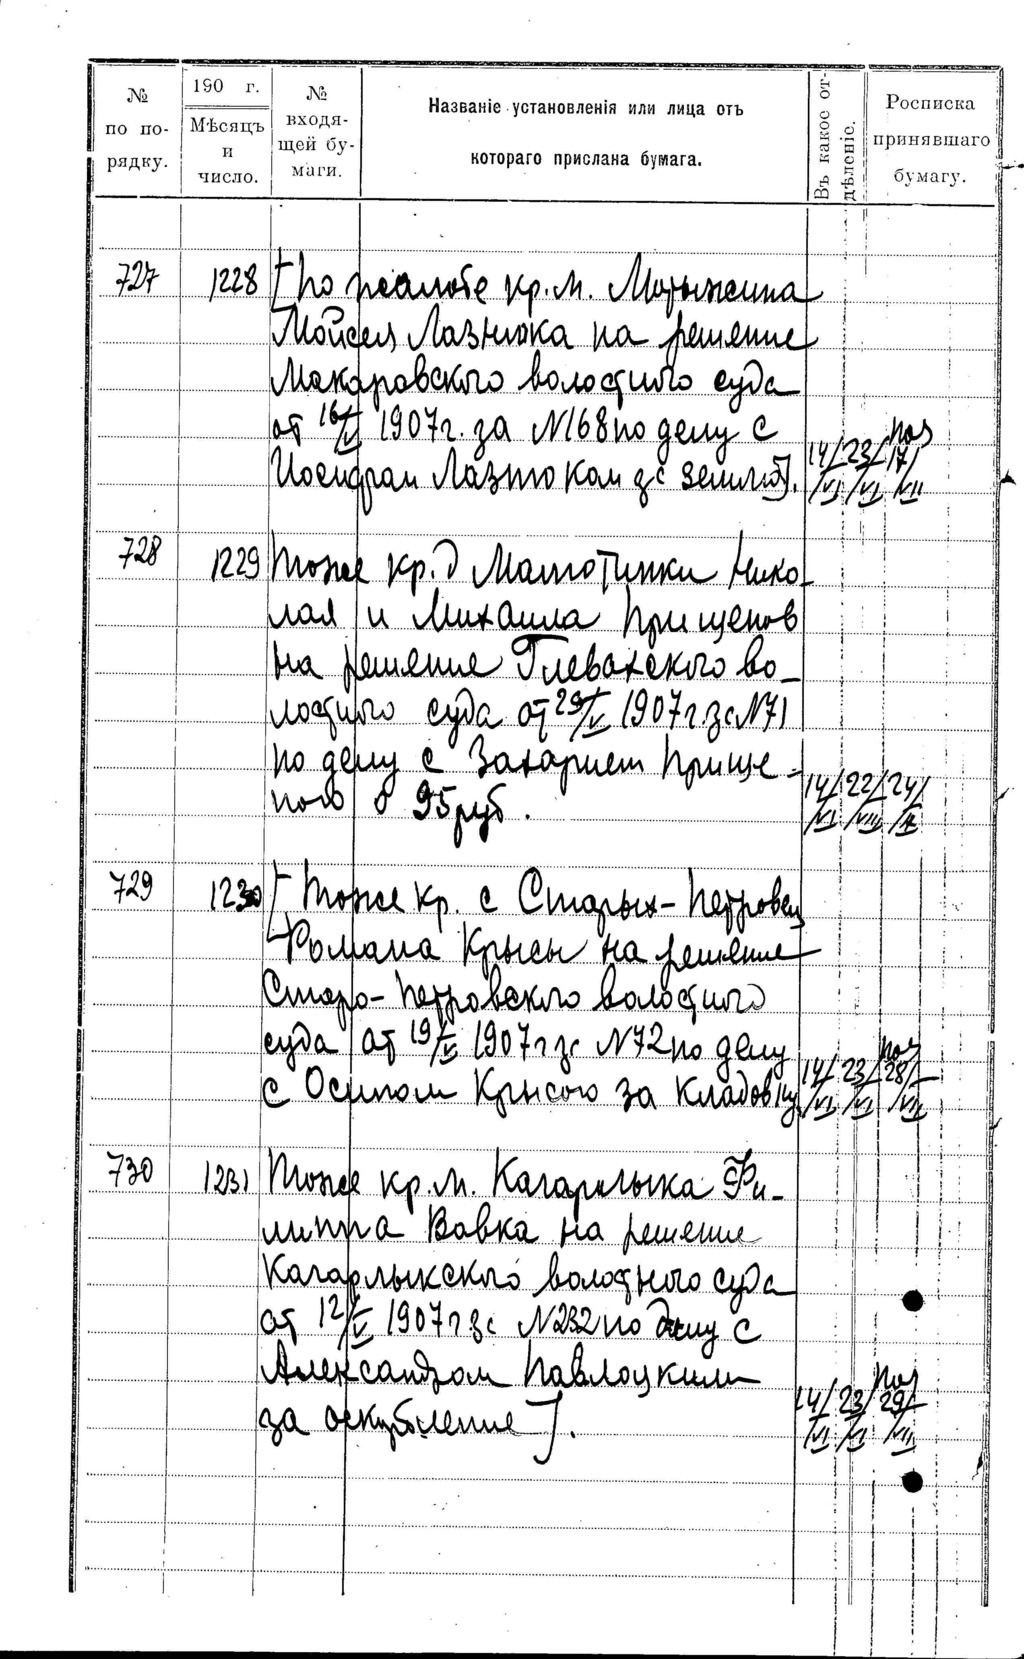 № по по-рядку.
190 г. Мѣсяцъ и число.
№ входя-щей бу-маги.
Названіе установленія или лица отъ
котораго прислана бумага.
Въ какое от-дѣленіе.
Росписка принявшаго бумагу.
727 1228 [По жалобе кр. м. Мотыжина
Мойсея Лазнюка на решение
Макаровского волостного суда
от 16/V 1907 г. за N168 по делу с
Иосифом Лазнюком за землю]. 14/VI 23/VI 17/VII
728 1229 Тоже кр. д Малютинки Нико-
лая и Михаила Прищепов
на решение Глевахского во-
лостного суда от 29/V 1907 г за N71
по делу с Захарием Прище-
пою о 95 руб. 14/VI 22/VIII 24/
729 1230 [Тоже кр. с Старых-Петровец
Романа Крысы на решение
Старо-Петровского волостного
суда от 19/V 1907 г за N72 по делу
с Осипом Крысою за кладовку 14/VI 23/VI 28/VII
730 1231 Тоже кр. м. Кагарлыка Фи-
липпа Вовка на решение
Кагарлыкского волостного суда
от 12/V 1907 г за N232 по делу с
Александром Павлоцким
за оскорбление]. 14/VI 23/VI 29/VII